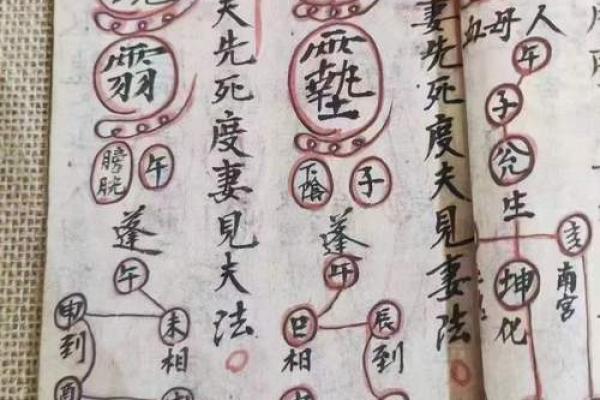 人
母
血
午
子
兌
生
坤
化
南宮
妻先死度夫見妻法
子
下陰
蓬
午
辰到
巳相
夫先死度妻見夫法
午
膀胱
蓬
午
未相
申到
酉